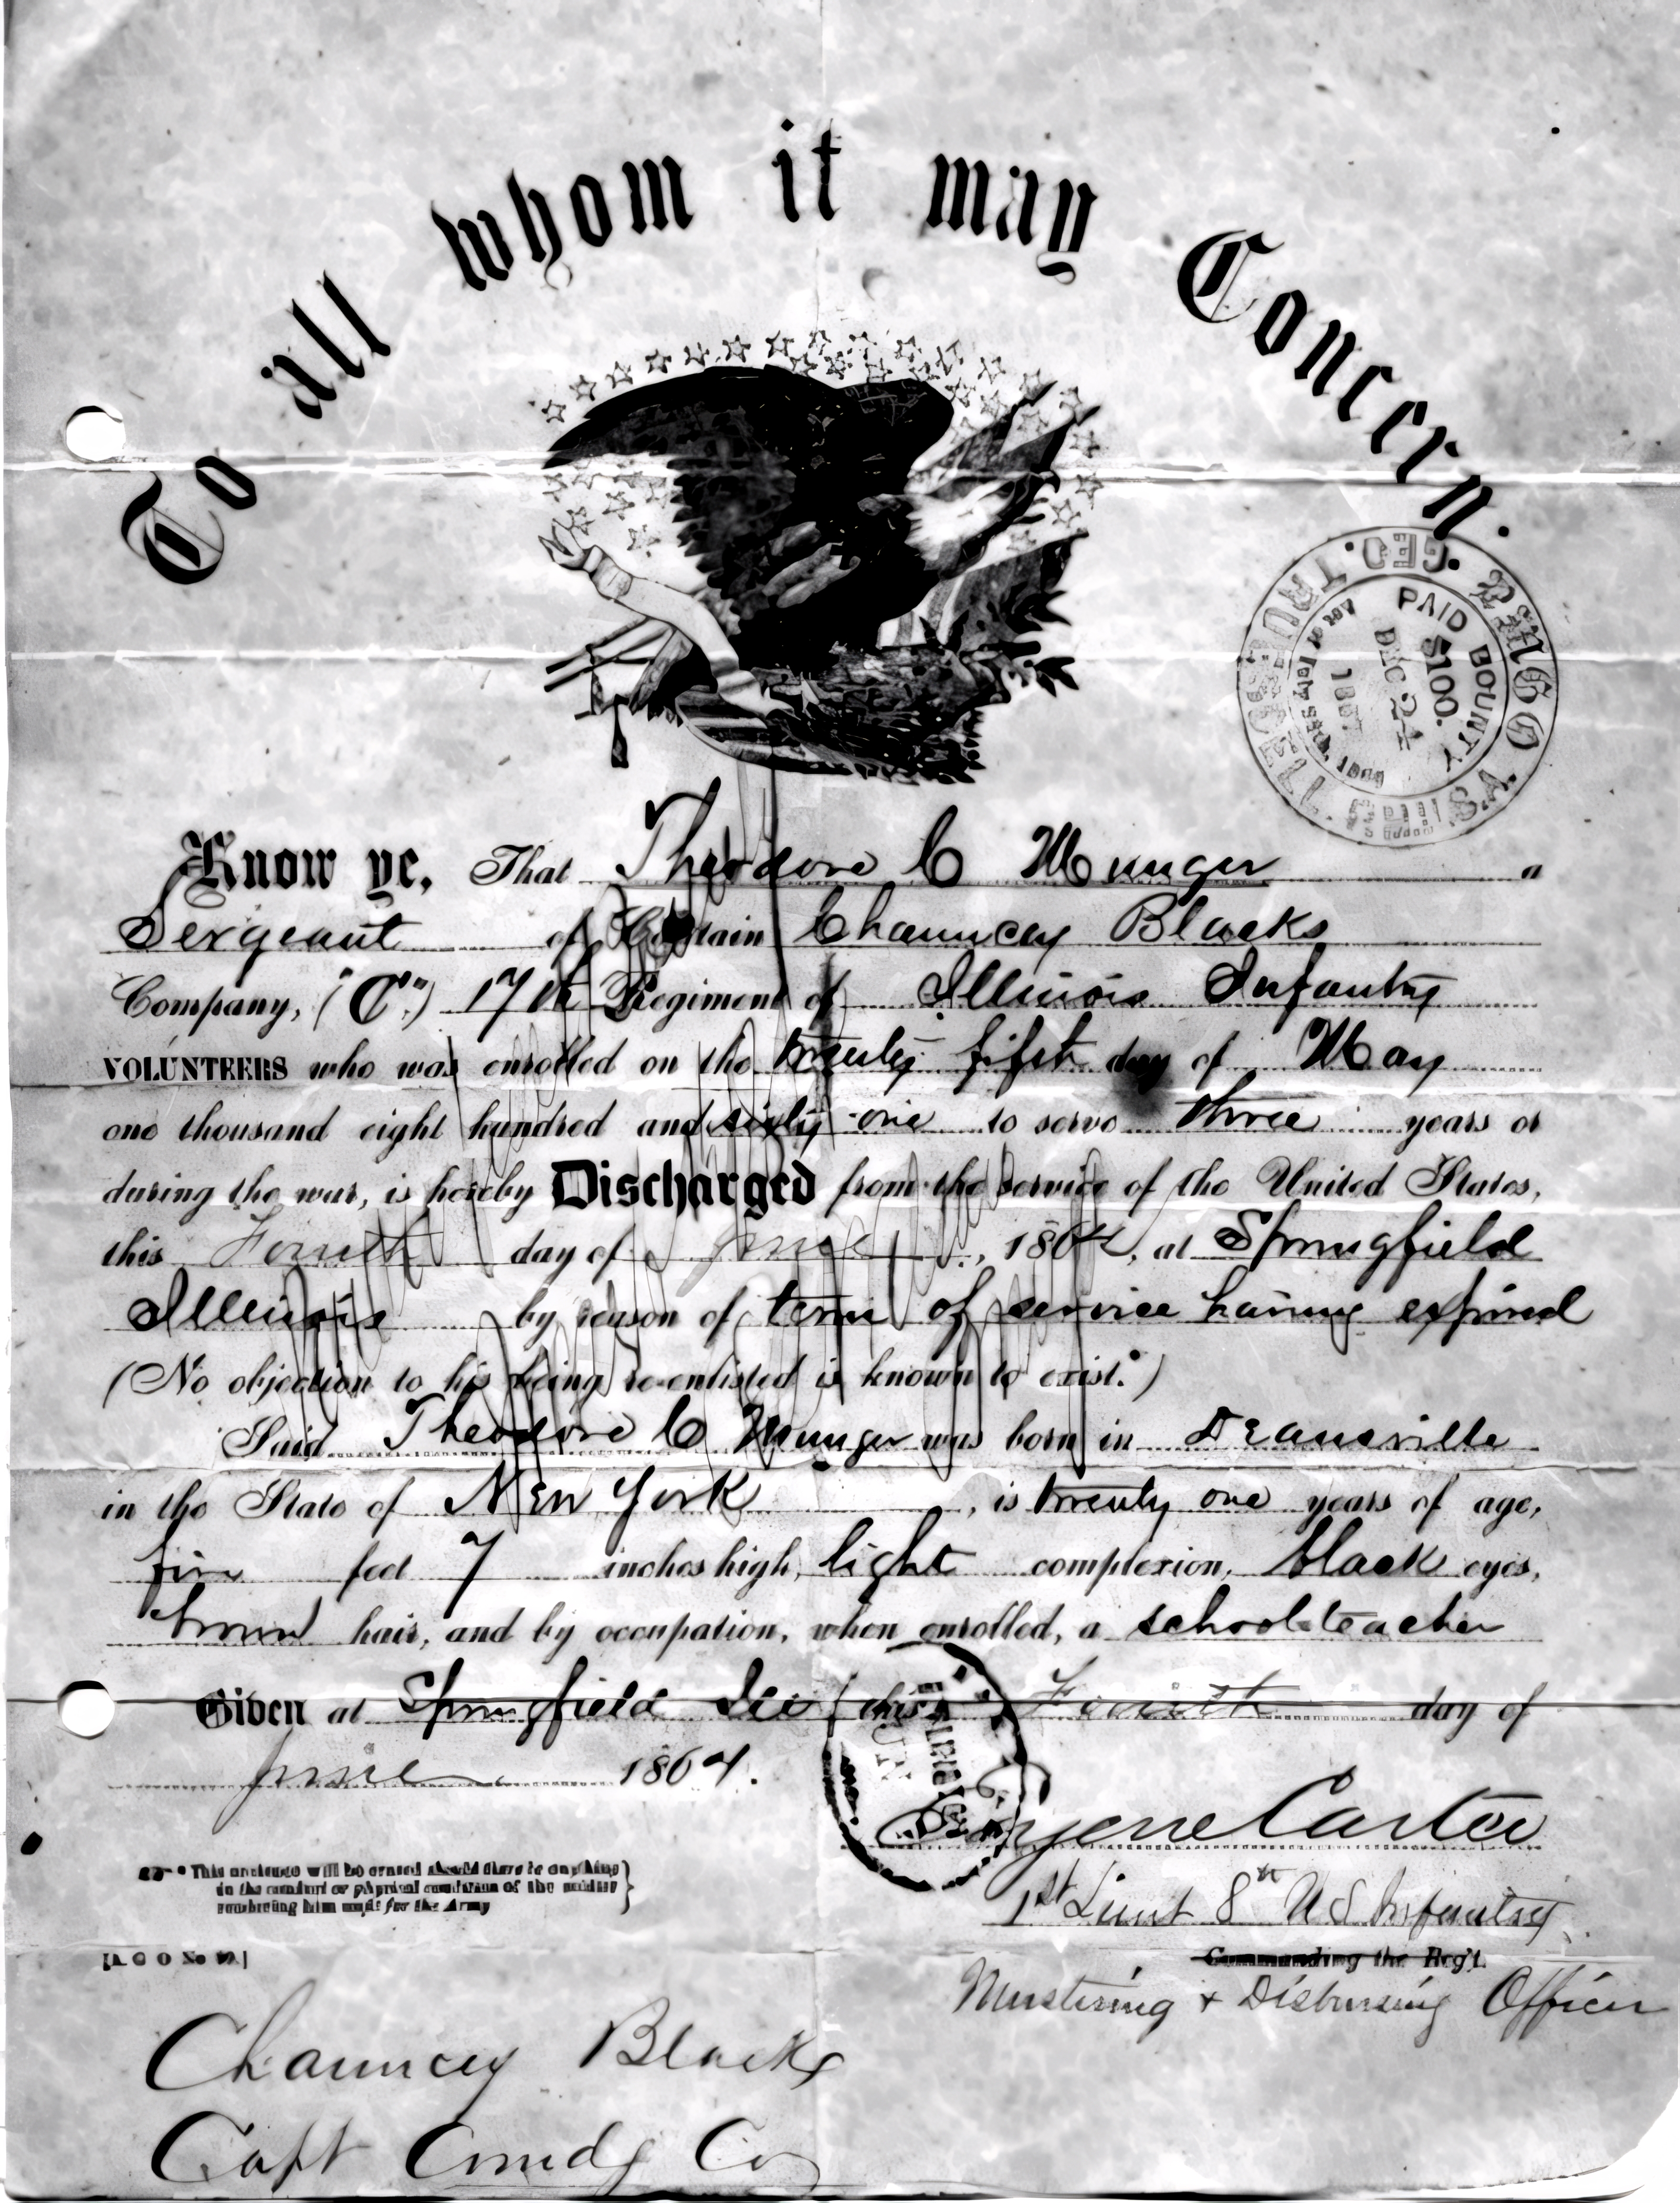 To all whom it may Concern.
GEO. TRU
PAID BOUNTY
$100.
DEC 24
1867
Know ye, That Theodore C Munger a
Sergeant of Captain Chauncey Blacks
Company, ("C") 17th Regiment of Illinois Infantry
VOLUNTEERS who was enrolled on the twenty fifth day of May
one thousand eight hundred and sixty one to serve three years or
during the war, is hereby Discharged from the service of the United States,
this Fourth day of June, 1864, at Springfield
Illinois by reason of term of service having expired
(No objection to his being re-enlisted is known to exist.*)
Said Theodore C Munger was born in Deansville
in the State of New York, is twenty one years of age,
five feet 7 inches high, light complexion, black eyes,
brown hair, and by occupation, when enrolled, a school teacher
Given at Springfield Ills this Fourth day of
June 1864.
Eugene Carter
1st Lieut 8th U S Infantry
Commanding the Reg't.
Mustering & Disbursing Officer
* This sentence will be erased should there be anything
in the conduct or physical condition of the soldier
rendering him unfit for the Army
[A G O No
Chauncey Black
Capt Comdg Co